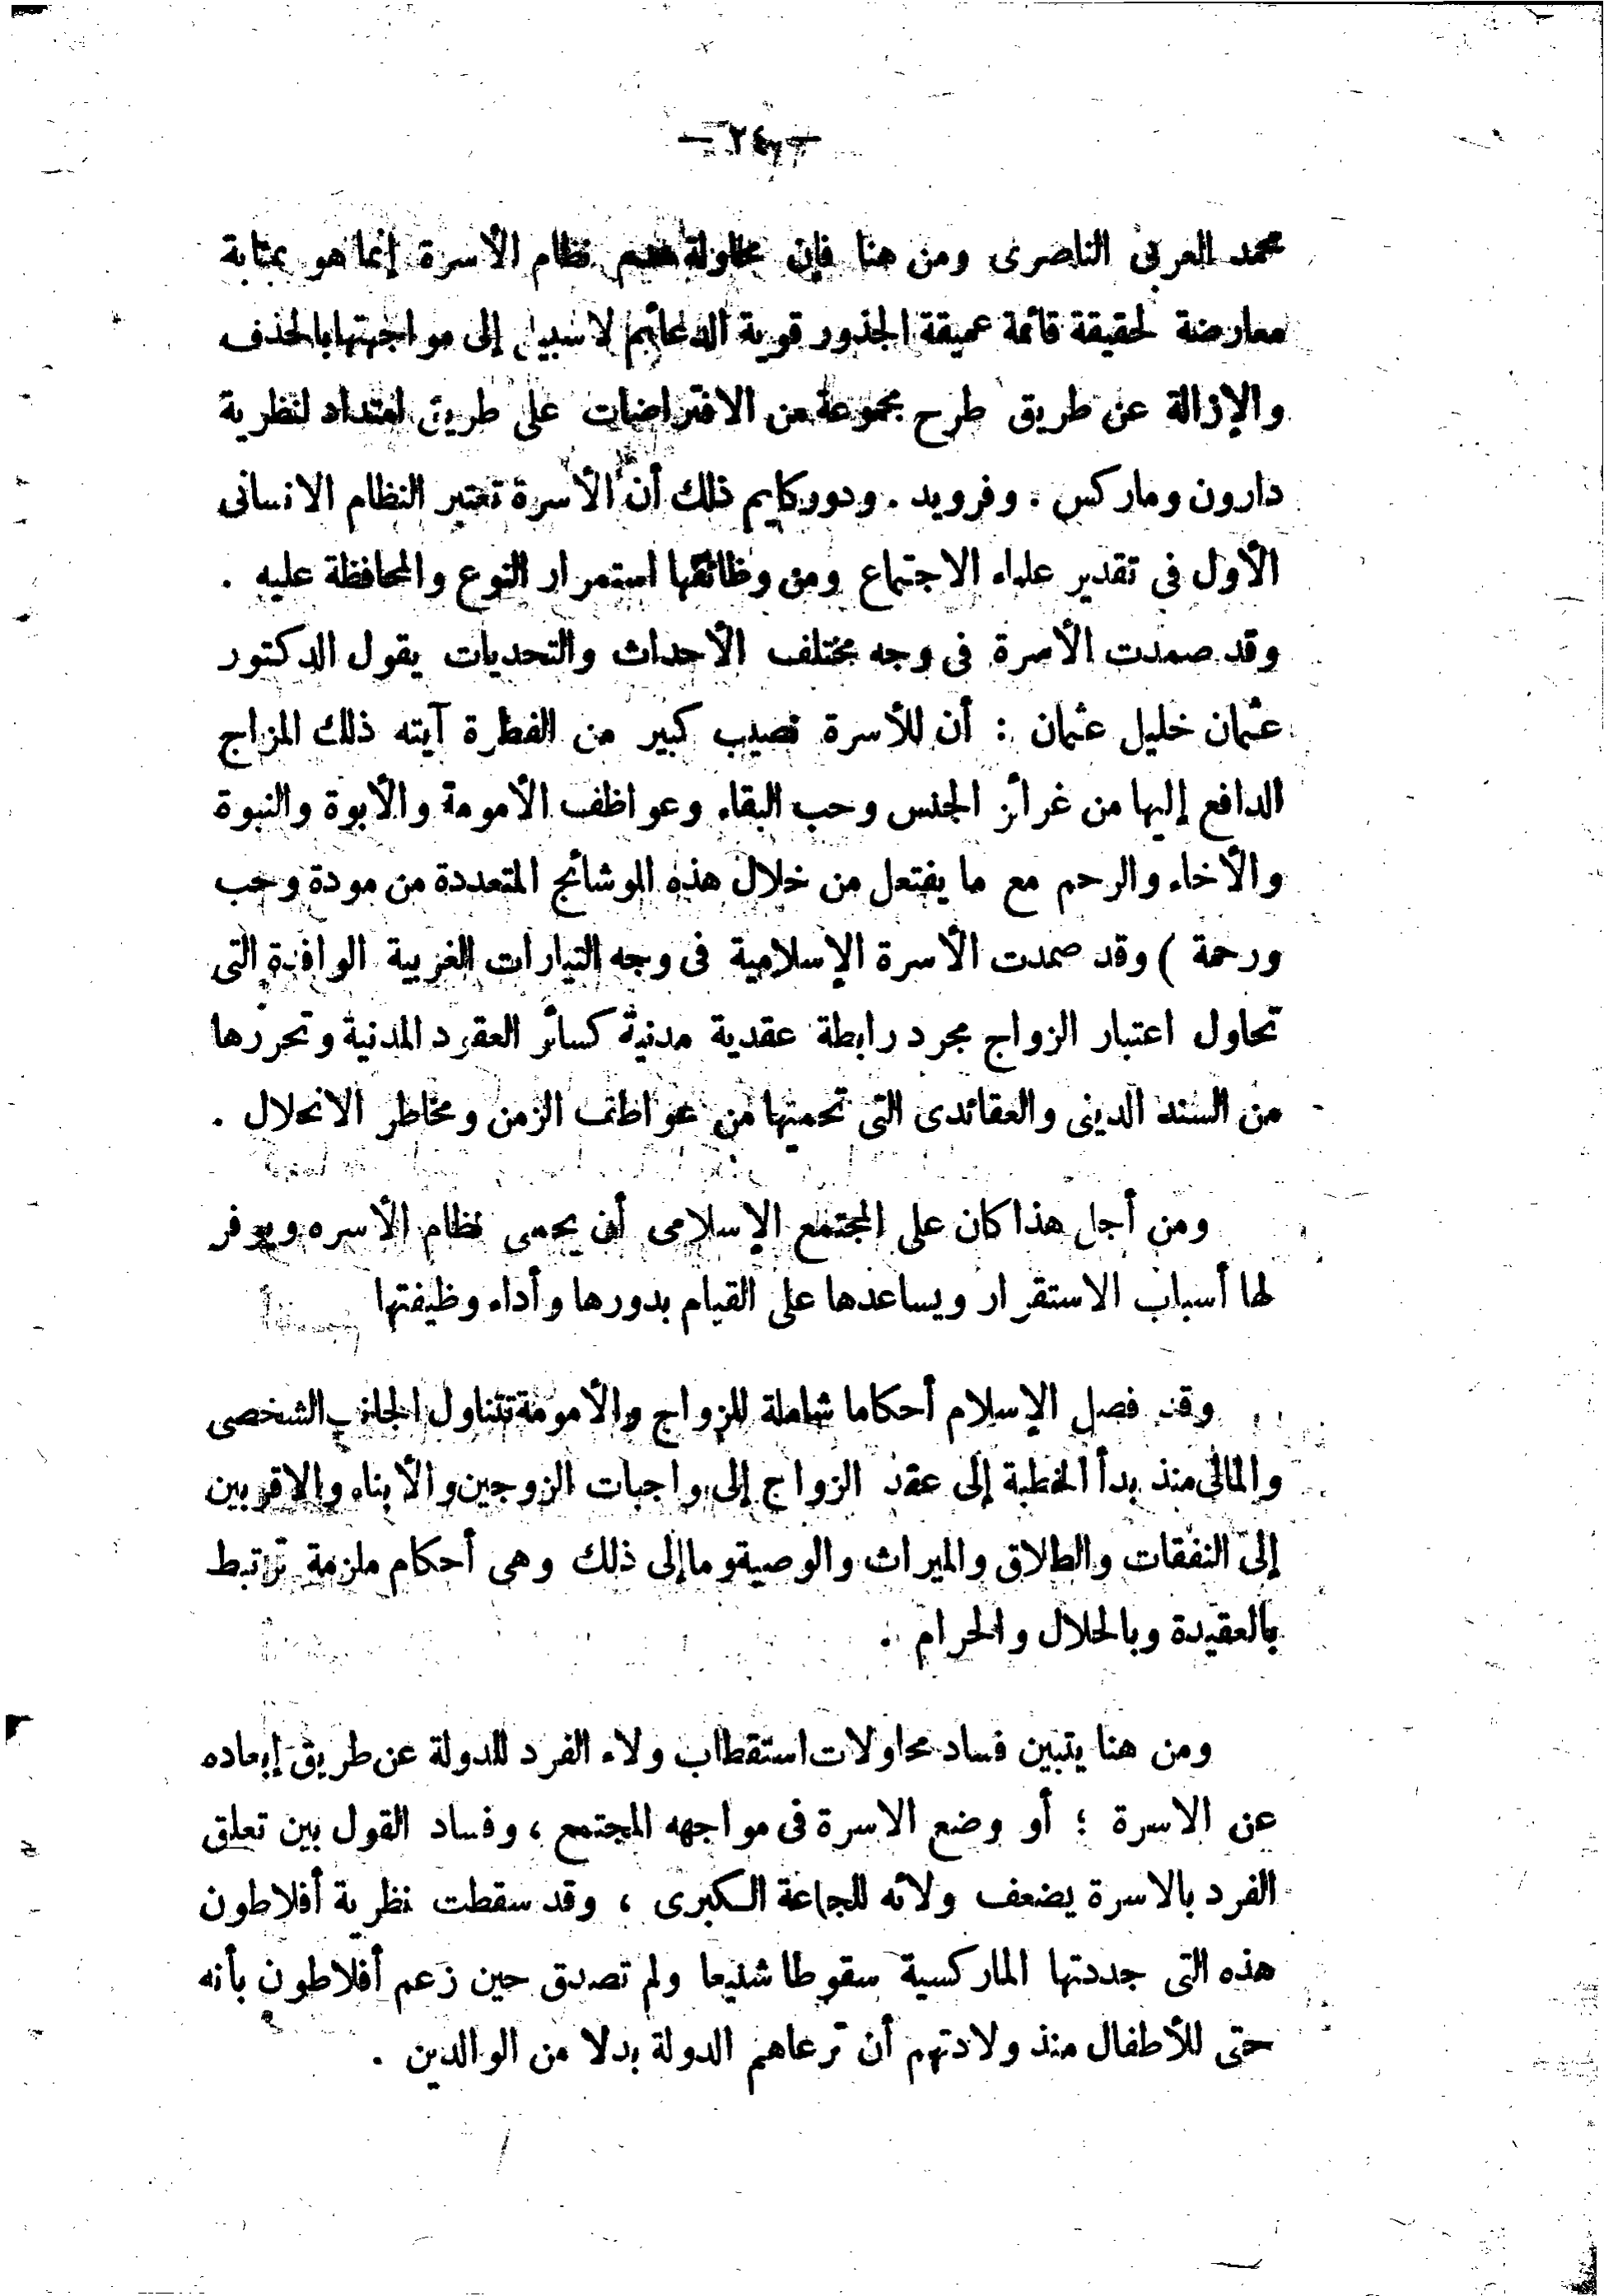 محمد العربى الناصرى ومن هنا فإن محاولة هدم نظام الأسرة إنما هو بمثابة
معارضة لحقيقة قائمة عميقة الجذور قوية الدعائم لا سبيل إلى مواجهتها بالحذف
والإزالة عن طريق طرح مجموعة من الافتراضات على طريق امتداد لنظرية
دارون وماركس . وفرويد . ودوركايم ذلك أن الأسرة تعتبر النظام الانسانى
الأول فى تقدير علماء الاجتماع ومن وظائفها استمرار النوع والمحافظة عليه .
وقد صمدت الأسرة فى وجه مختلف الأحداث والتحديات يقول الدكتور
عثمان خليل عثمان : أن للأسرة نصيب كبير من الفطرة آيته ذلك المزاج
الدافع إليها من غرائز الجنس وحب البقاء وعواظف الأمومة والأبوة والنبوة
والأخاء والرحم مع ما يفتعل من خلال هذه الوشائج المتعددة من مودة وحب
ورحمة ) وقد صمدت الأسرة الإسلامية فى وجه التيارات الغربية الوافدة التى
تحاول اعتبار الزواج مجرد رابطة عقدية مدنية كسائر العقود المدنية وتحررها
من السند الدينى والعقائدى التى تحميتها من عواطف الزمن ومخاطر الانحلال .
ومن أجل هذا كان على المجتمع الإسلامى أن يحمى نظام الأسره ويوفر
لها أسباب الاستقرار ويساعدها على القيام بدورها وأداء وظيفتها
وقد فصل الإسلام أحكاما شاملة للزواج والأمومة تتناول الجانب الشخصى
والمالى منذ بدأ الخطبة إلى عقد الزواج إلى واجبات الزوجين والأبناء والاقربين
إلى النفقات والطلاق والميراث والوصية وما إلى ذلك وهى أحكام ملزمة ترتبط
بالعقيدة وبالحلال والحرام .
ومن هنا يتبين فساد محاولات استقطاب ولاء الفرد للدولة عن طريق إبعاده
عن الاسرة ؛ أو وضع الاسرة فى مواجهه المجتمع ، وفساد القول بين تعلق
الفرد بالاسرة يضعف ولائه للجماعة الكبرى ، وقد سقطت نظرية أفلاطون
هذه التى جددتها الماركسية سقوطا شنيعا ولم تصدق حين زعم أفلاطون بأنه
حتى للأطفال منذ ولادتهم أن ترعاهم الدولة بدلا من الوالدين .